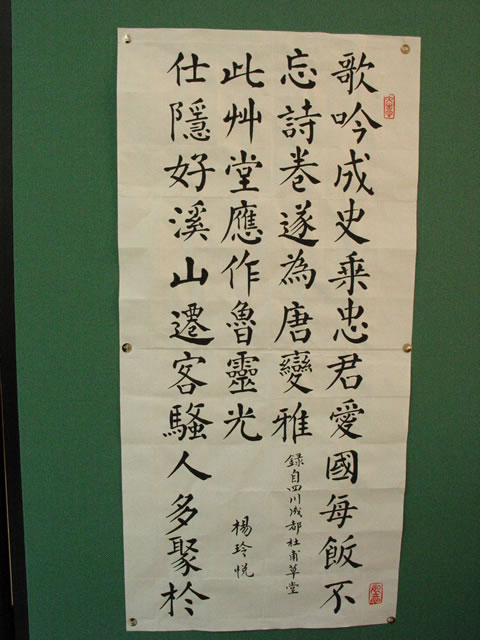 歌吟成史乘忠君愛國每飯不
忘詩卷遂為唐變雅
仕隱好溪山遷客騷人多聚於
此艸堂應作魯靈光
錄自四川成都杜甫草堂
楊玲悅